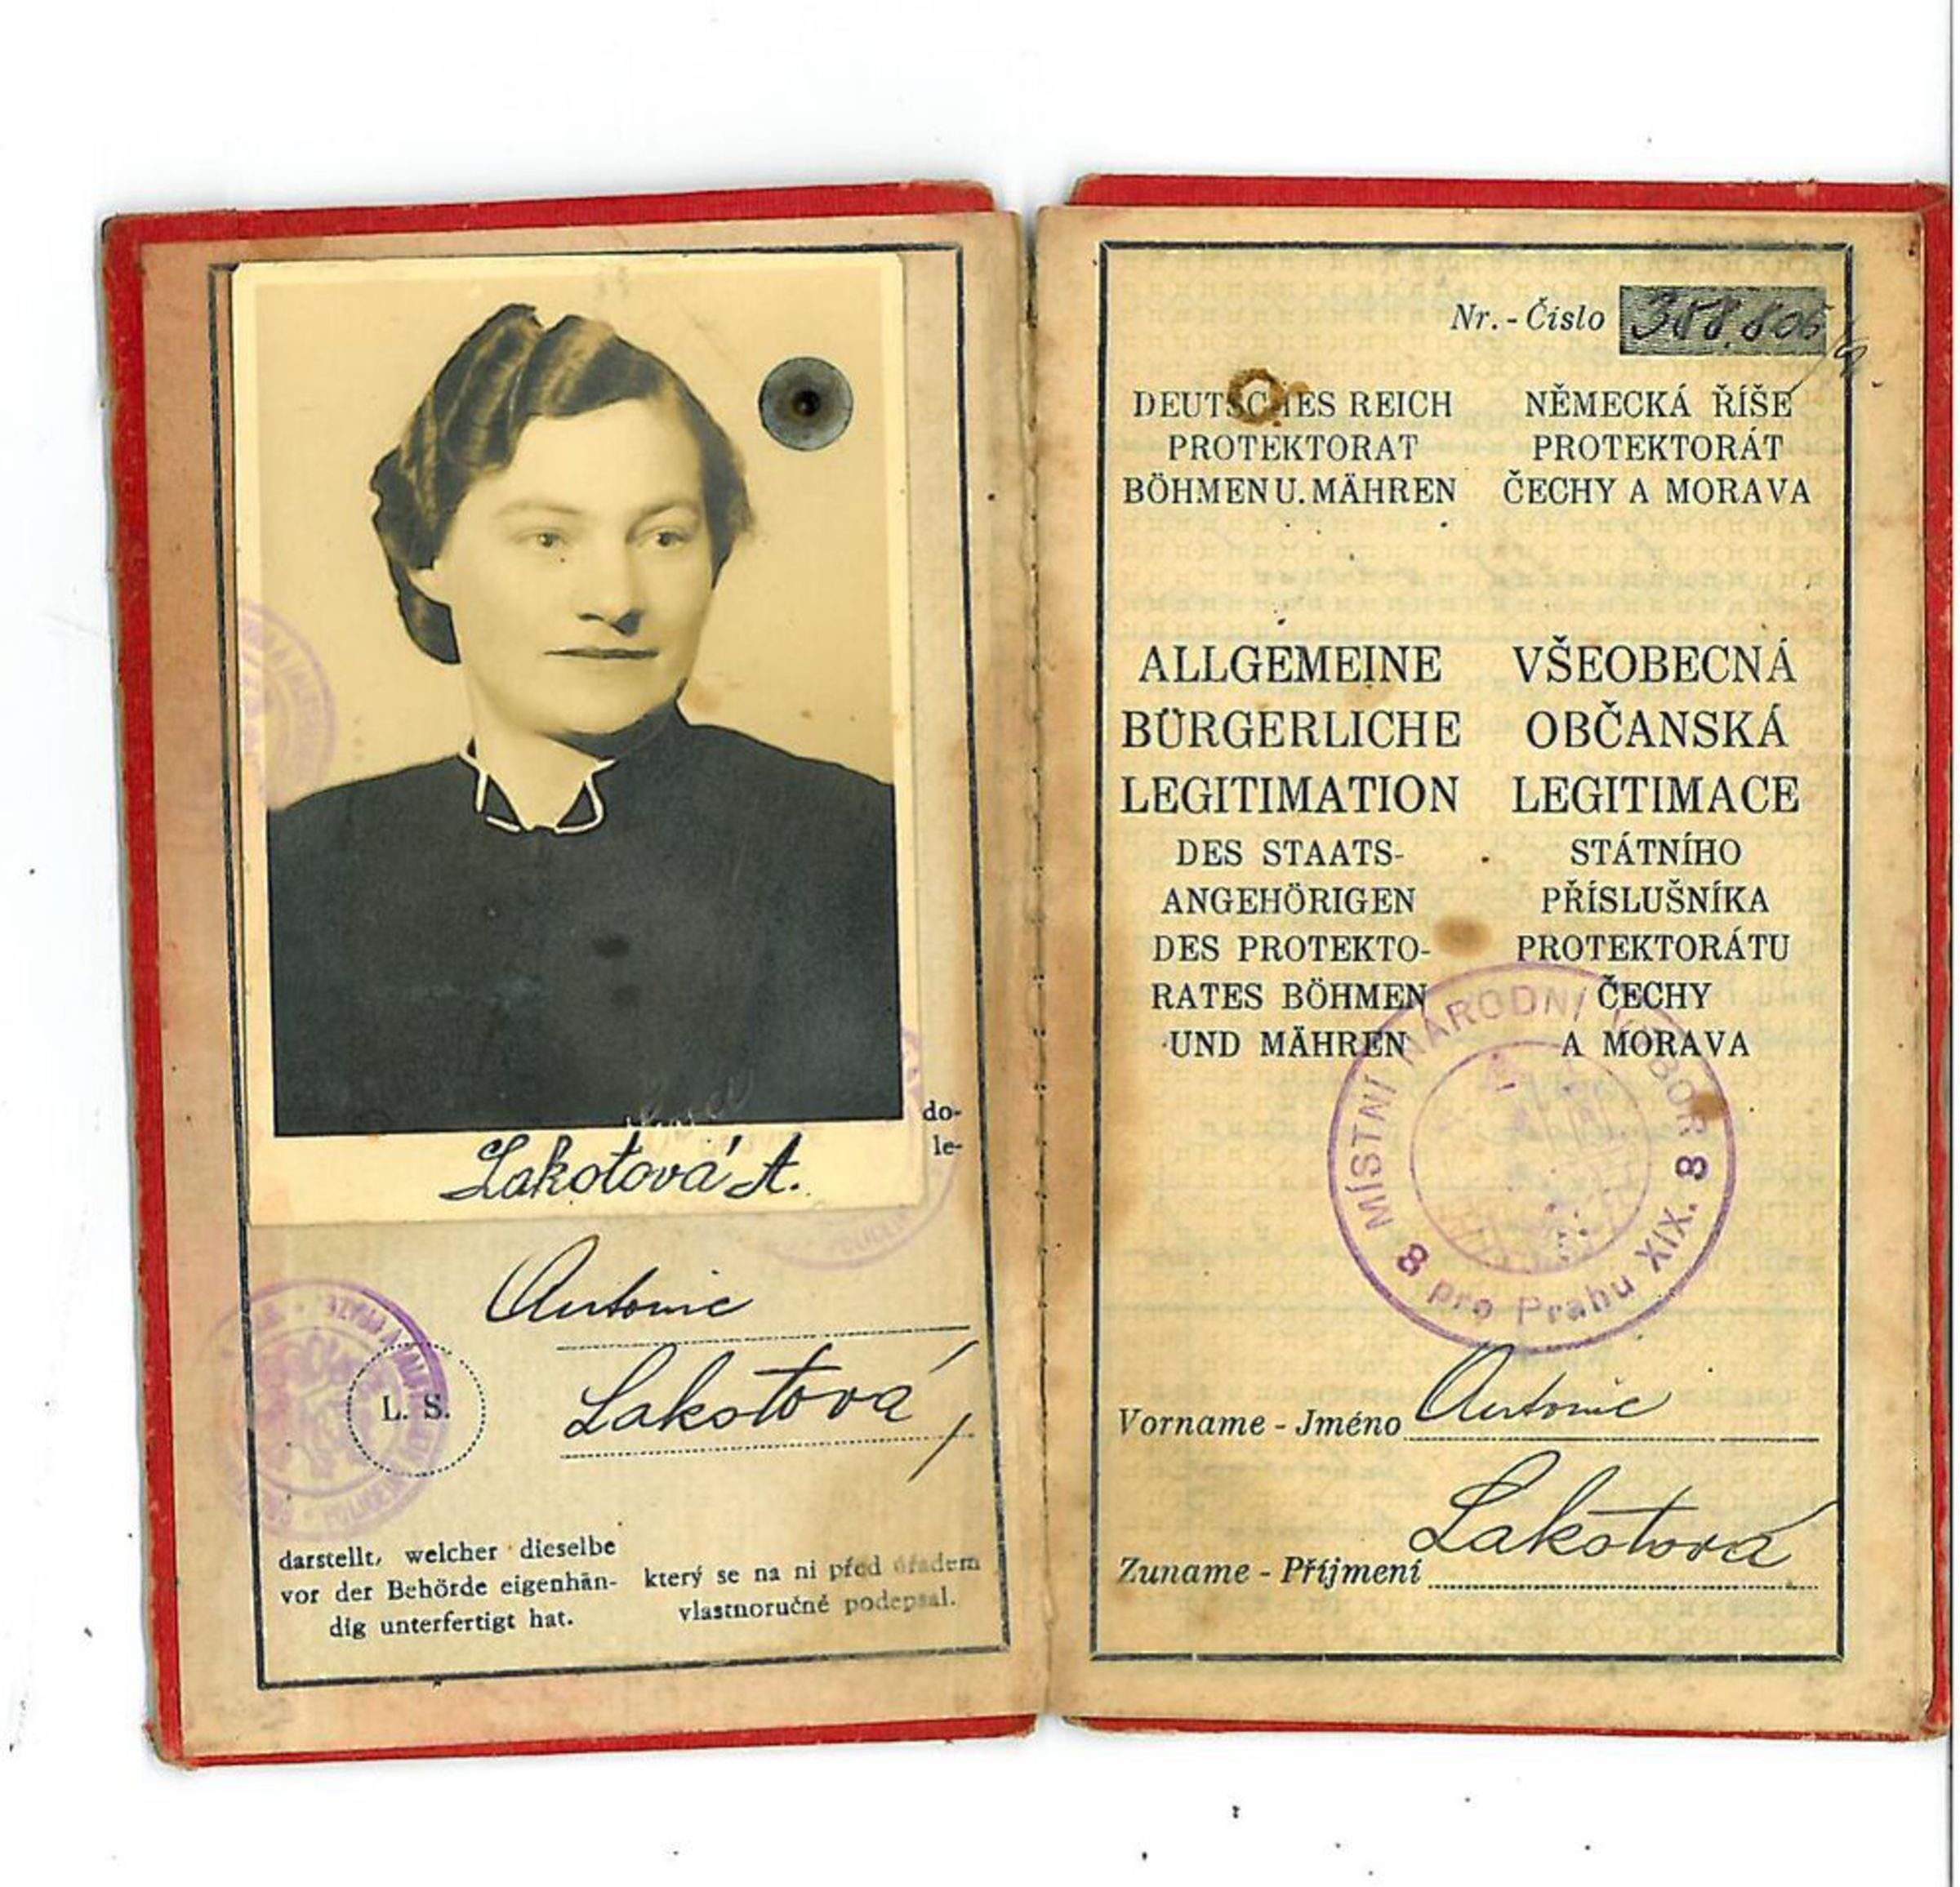 do-
le-
Lakotová A.
Antonie
Lakotová
L. S.
darstellt, welcher dieselbe
vor der Behörde eigenhän-
dig unterfertigt hat.
který se na ni před úřadem
vlastnoručně podepsal.
Nr. - Číslo
DEUTSCHES REICH
PROTEKTORAT
BÖHMEN U. MÄHREN
NĚMECKÁ ŘÍŠE
PROTEKTORÁT
ČECHY A MORAVA
ALLGEMEINE
BÜRGERLICHE
LEGITIMATION
DES STAATS-
ANGEHÖRIGEN
DES PROTEKTO-
RATES BÖHMEN
UND MÄHREN
VŠEOBECNÁ
OBČANSKÁ
LEGITIMACE
STÁTNÍHO
PŘÍSLUŠNÍKA
PROTEKTORÁTU
ČECHY
A MORAVA
MÍSTNÍ NÁRODNÍ VÝBOR 8
8 pro Prahu XIX.
Vorname - Jméno Antonie
Zuname - Příjmení Lakotová